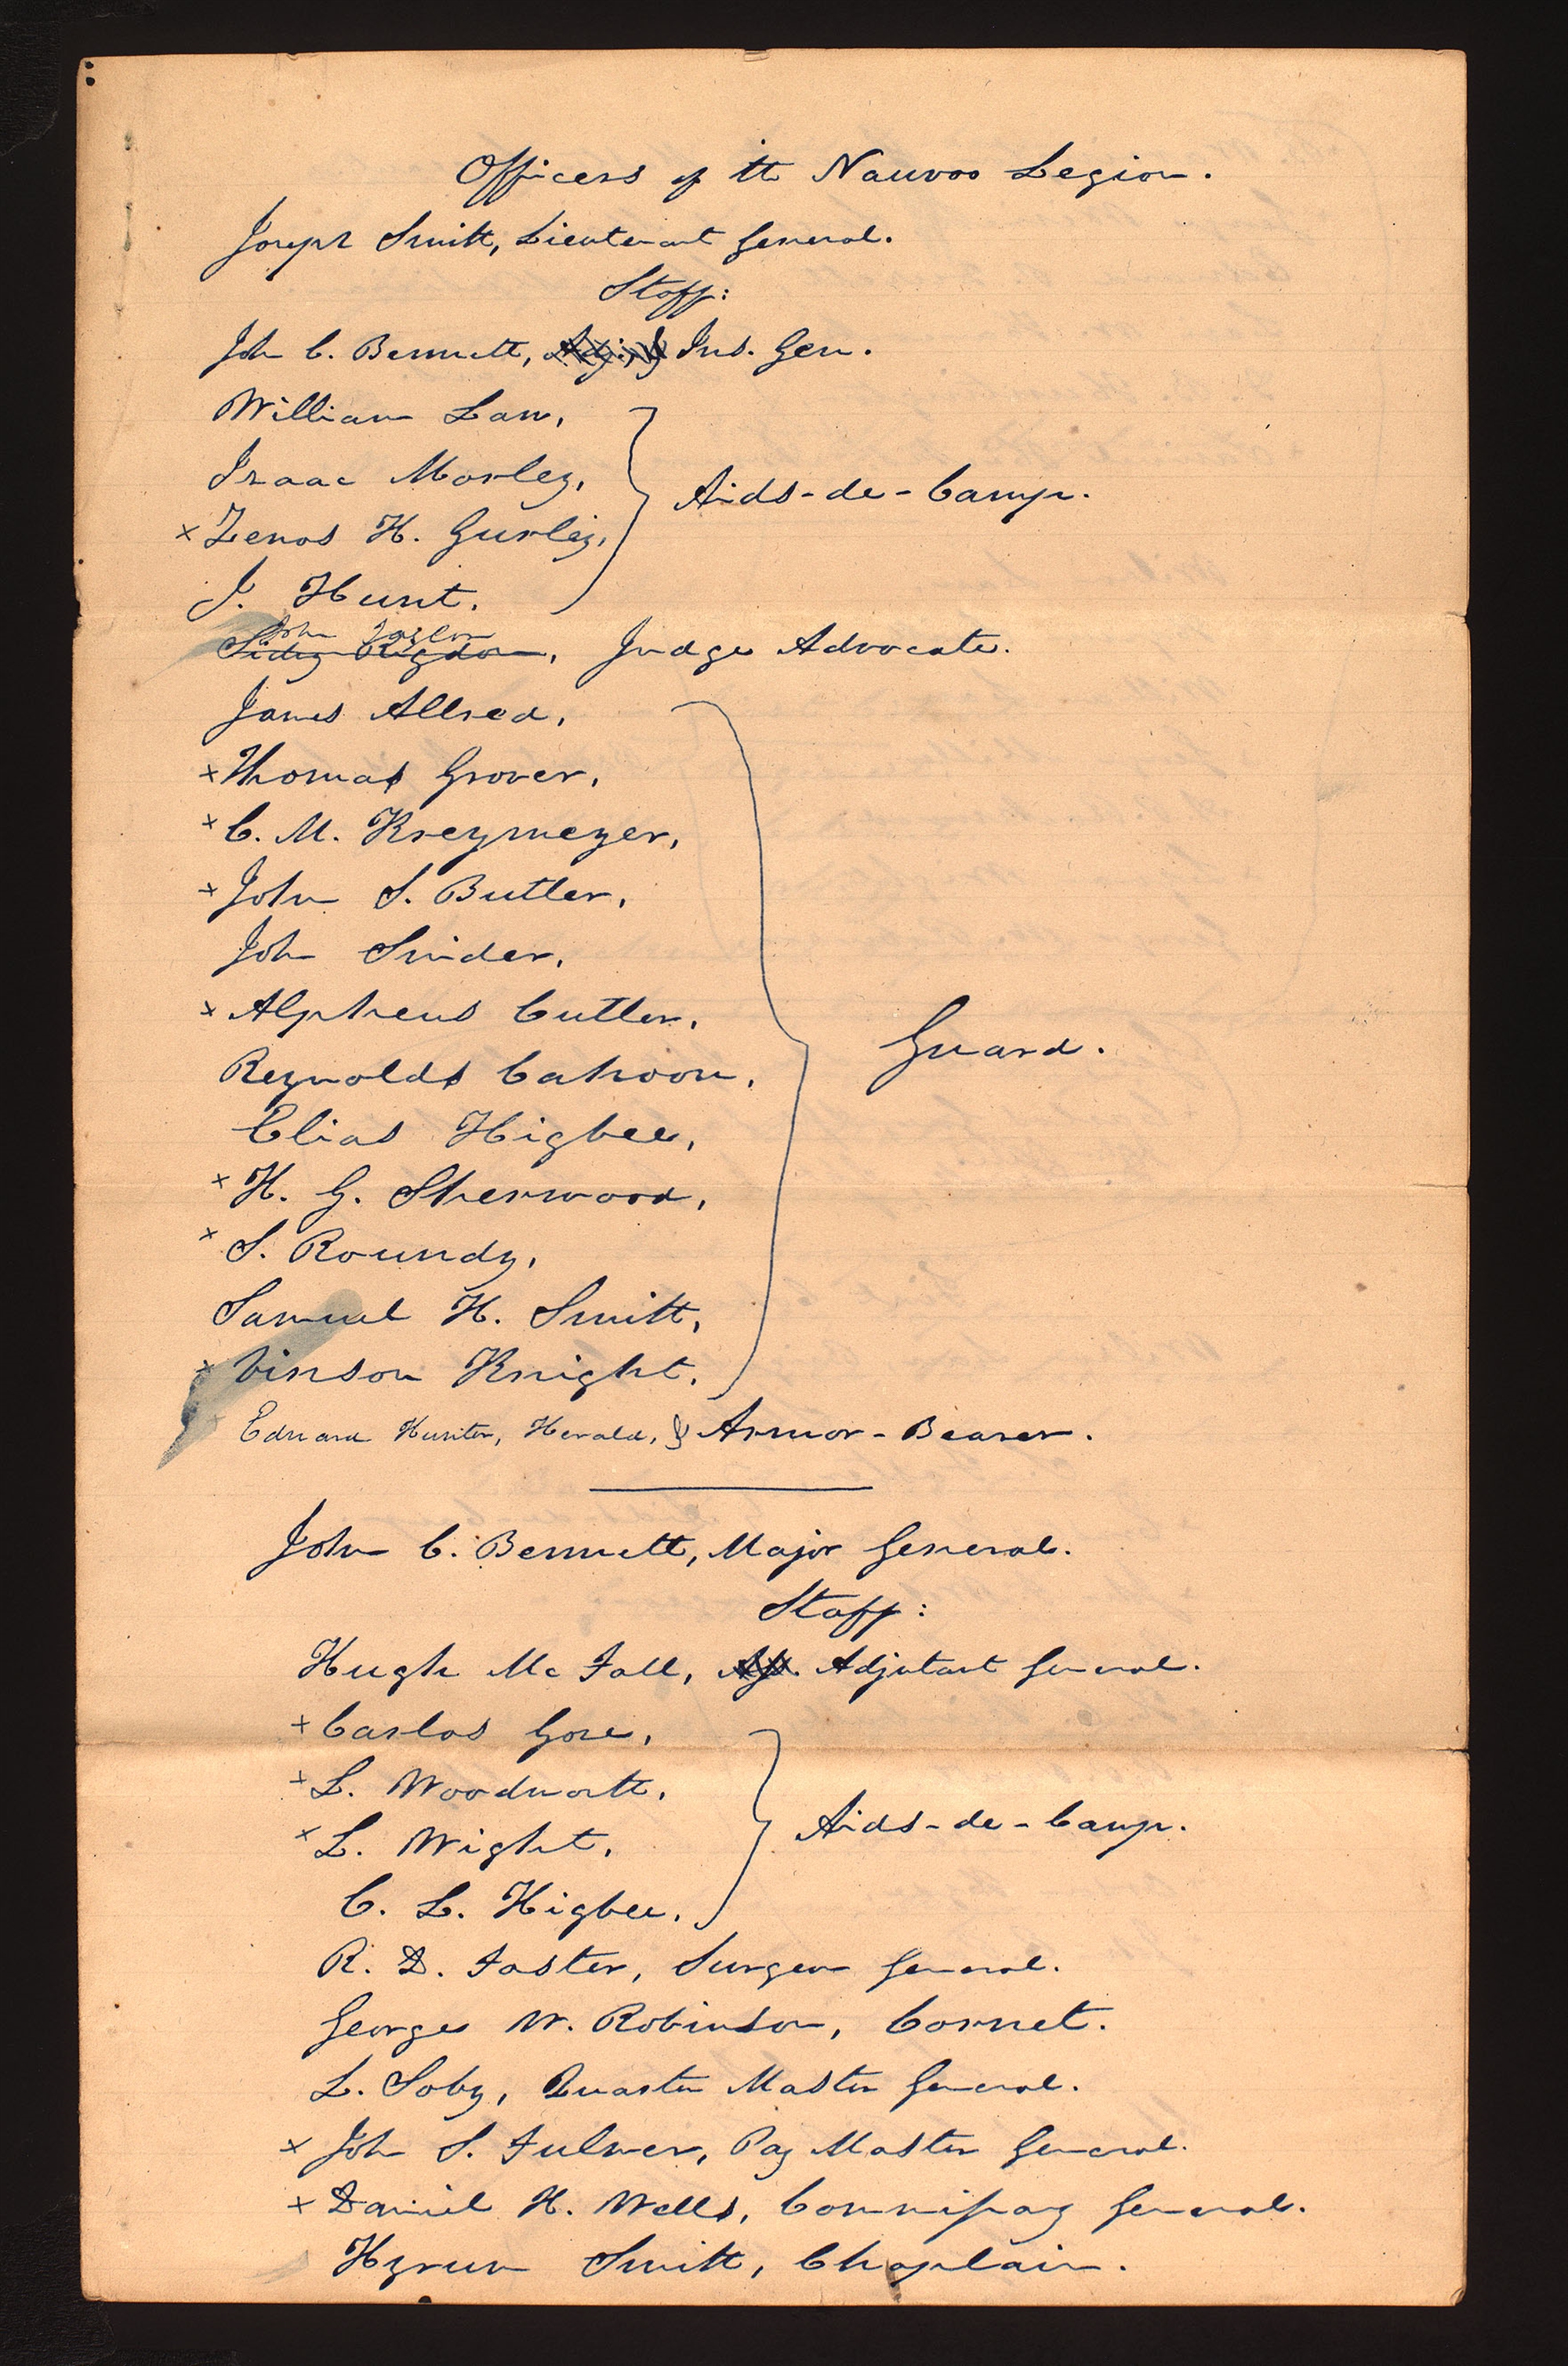 Officers of the Nauvoo Legion.
Joseph Smith, Lieutenant General.
Staff:
John C. Bennett, Adj. & Ins. Gen.
William Law,
Isaac Morley,
Aids-de-Camp.
x Zenos H. Gurley,
J. Hunt.
John Taylor
Sidney Rigdon, Judge Advocate.
James Allred,
x Thomas Grover,
x C. M. Kreymeyer,
x John S. Butler,
John Snider,
x Alpheus Cutler,
Reynolds Cahoon,
Guard.
Elias Higbee,
x H. G. Sherwood,
x S. Roundy,
Samuel H. Smith,
x Vinson Knight.
Edward Hunter, Herald, & Armor-Bearer.
John C. Bennett, Major General.
Staff:
Hugh Mc Fall, Adjutant General.
x Carlos Gove,
x L. Woodworth,
x L. Wight,
Aids-de-Camp.
C. L. Higbee.
R. D. Foster, Surgeon General.
George W. Robinson, Cornet.
L. Soby, Quarter Master General.
x John S. Fulmer, Pay Master General.
x Daniel H. Wells, Commissary General.
Hyrum Smith, Chaplain.